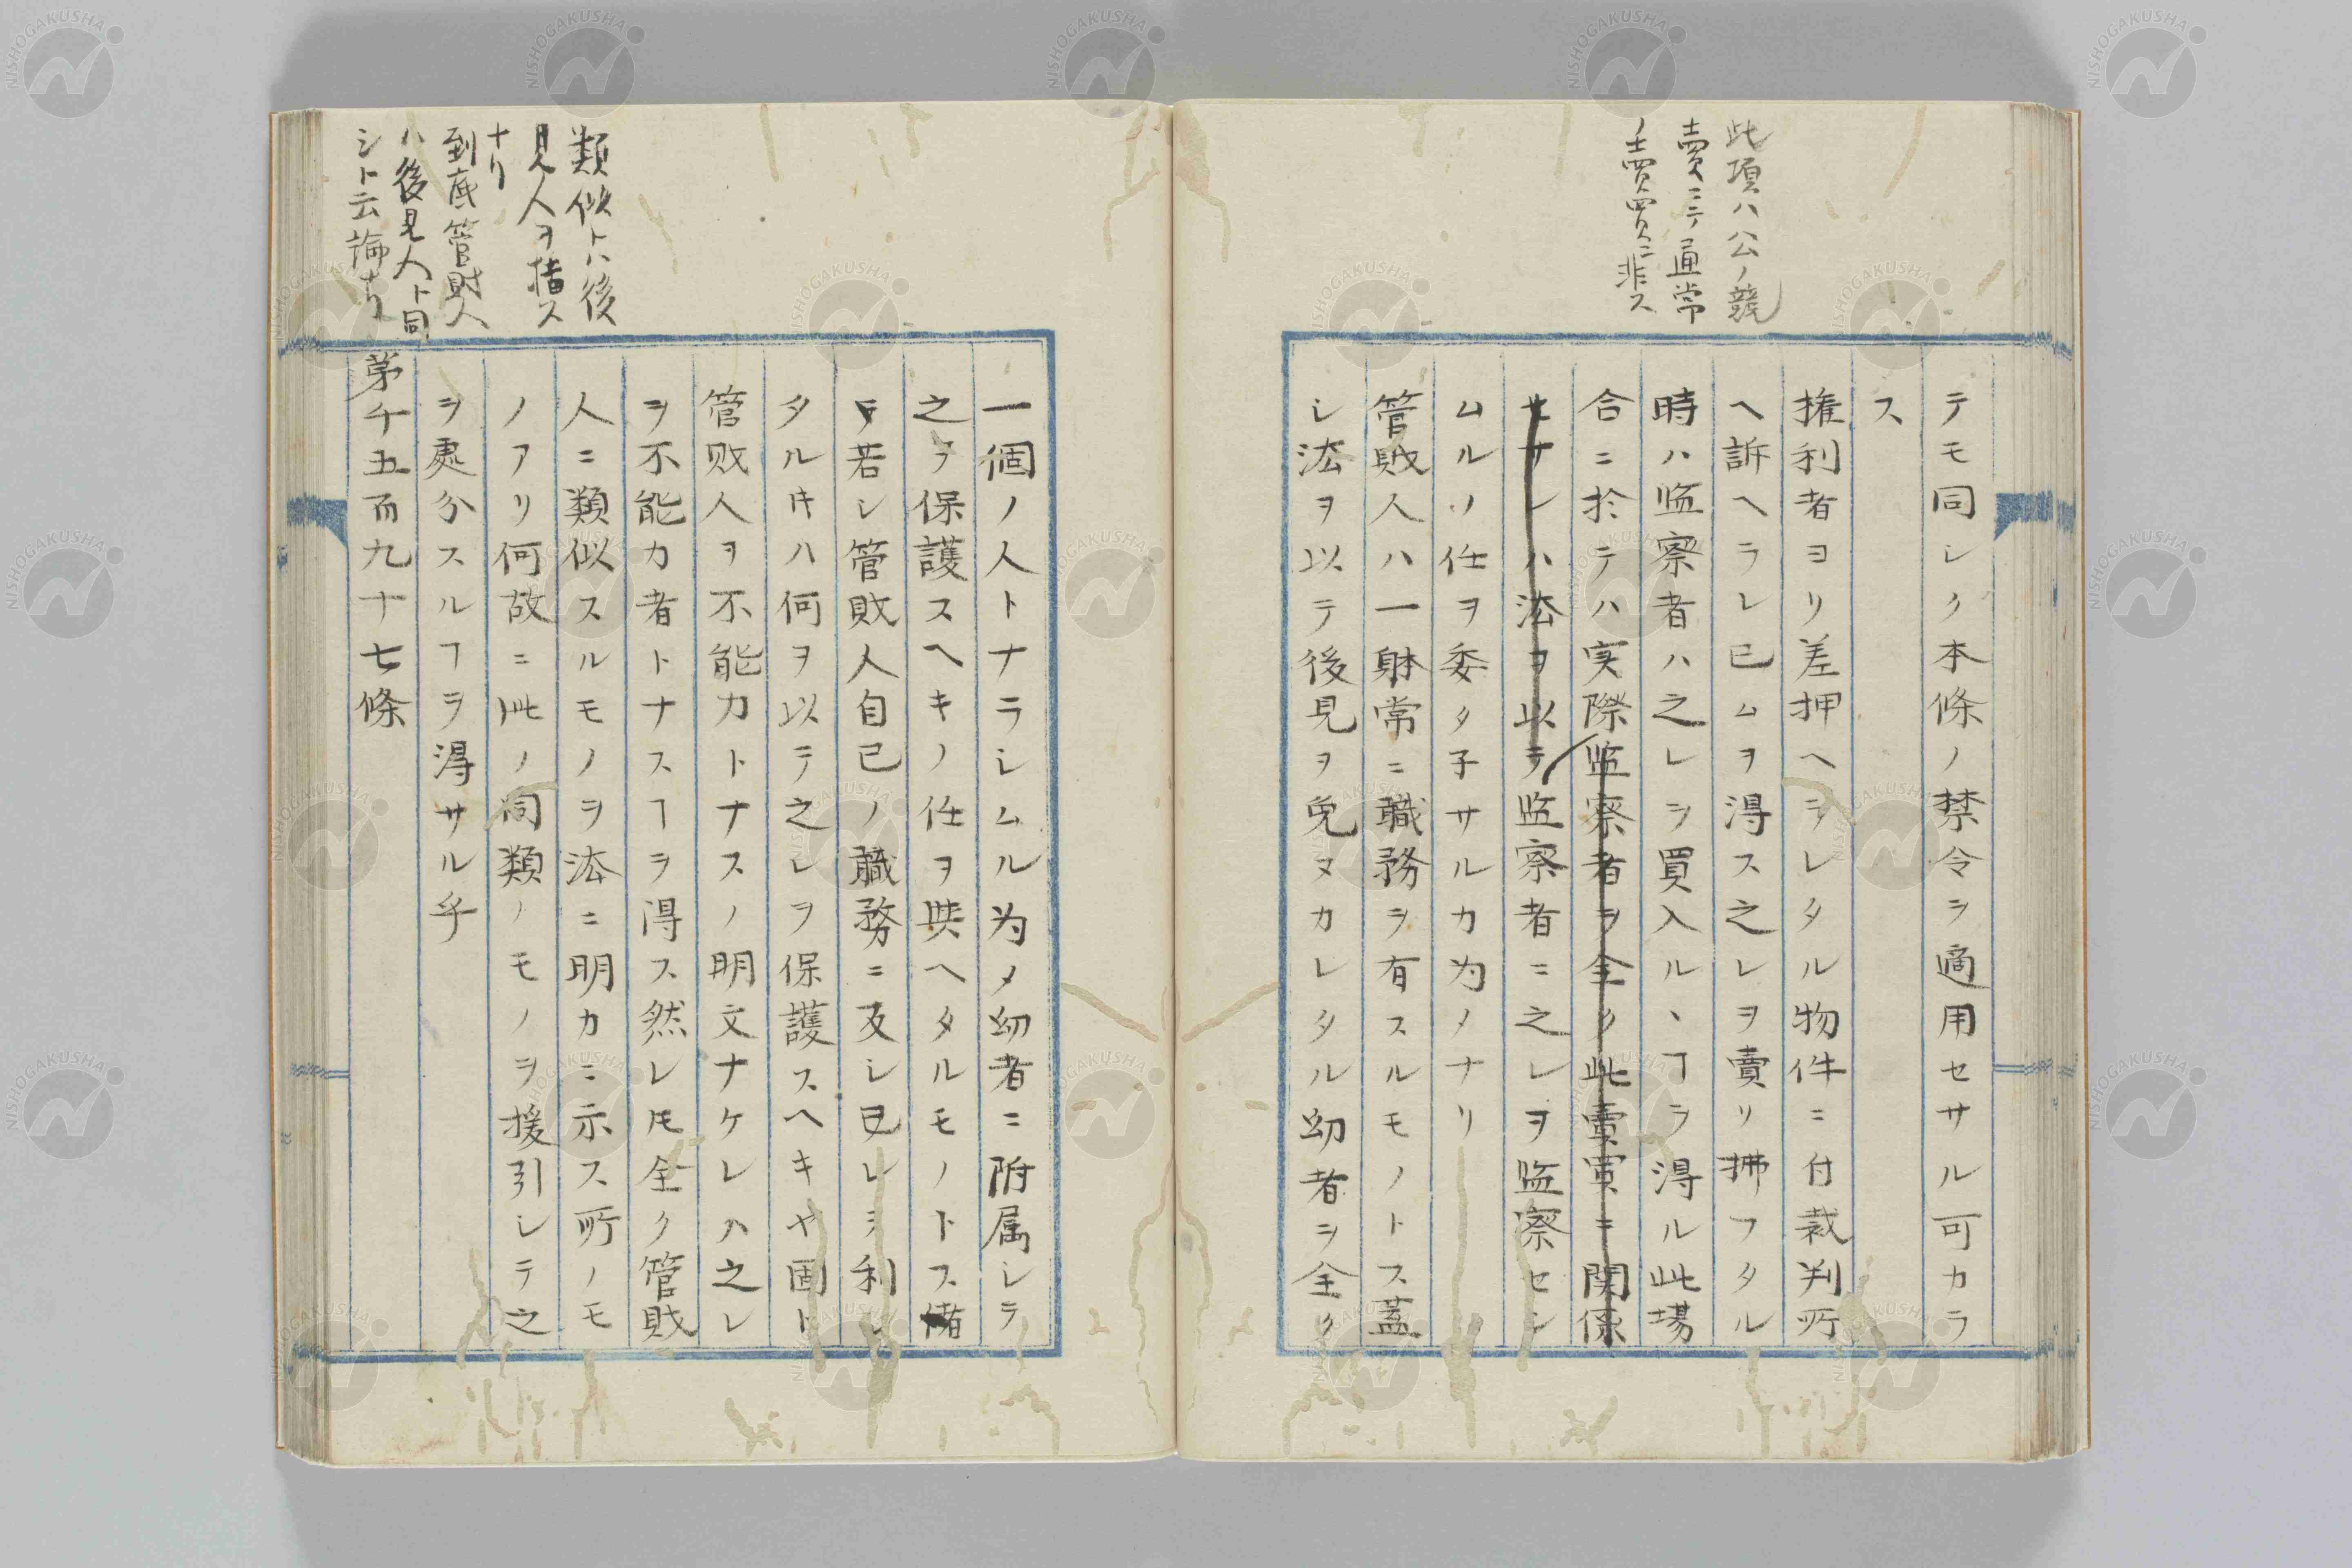 此項ハ公ノ競
売ニテ通常
ノ売買ニ非ス
テモ同シク本條ノ禁令ヲ適用セサル可カラ
ス
権利者ヨリ差押ヘラレタル物件ニ付裁判所
ヘ訴ヘラレ已ムヲ得ス之レヲ賣リ拂フタル
時ハ监察者ハ之レヲ買入ルヽヿヲ得ル此場
合ニ於テハ実際监察者ヲ全ク此賣買ニ関係
セサレハ法ヲ以テ监察者ニ之レヲ监察セシ
ムルノ任ヲ委タ子サルカ為メナリ
管財人ハ一躰常ニ職務ヲ有スルモノトス蓋
シ法ヲ以テ後見ヲ免ヌカレタル幼者ヲ全ク
類似トハ後
見人ヲ指ス
ナリ
到底管財人
ハ後見人ト同
シト云論ナリ
一個ノ人トナラシムル为メ幼者ニ附属シテ
之ヲ保護スヘキノ任ヲ與ヘタルモノトス
テ若シ管財人自己ノ職務ニ及シ己レヲ利シ
タル㐧ハ何ヲ以テ之レヲ保護スヘキヤ固ト
管財人ヲ不能力トナスノ明文ナケレハ之レ
ヲ不能力者トナスヿヲ得ス然レ𪜈全ク管財
人ニ類似スルモノヲ法ニ明カニ示ス所ノモ
ノアリ何故ニ此ノ同類ノモノヲ援引シテ之
ヲ處分スルヿヲ得サル乎
第千五百九十七條
NISHOGAKUSHA